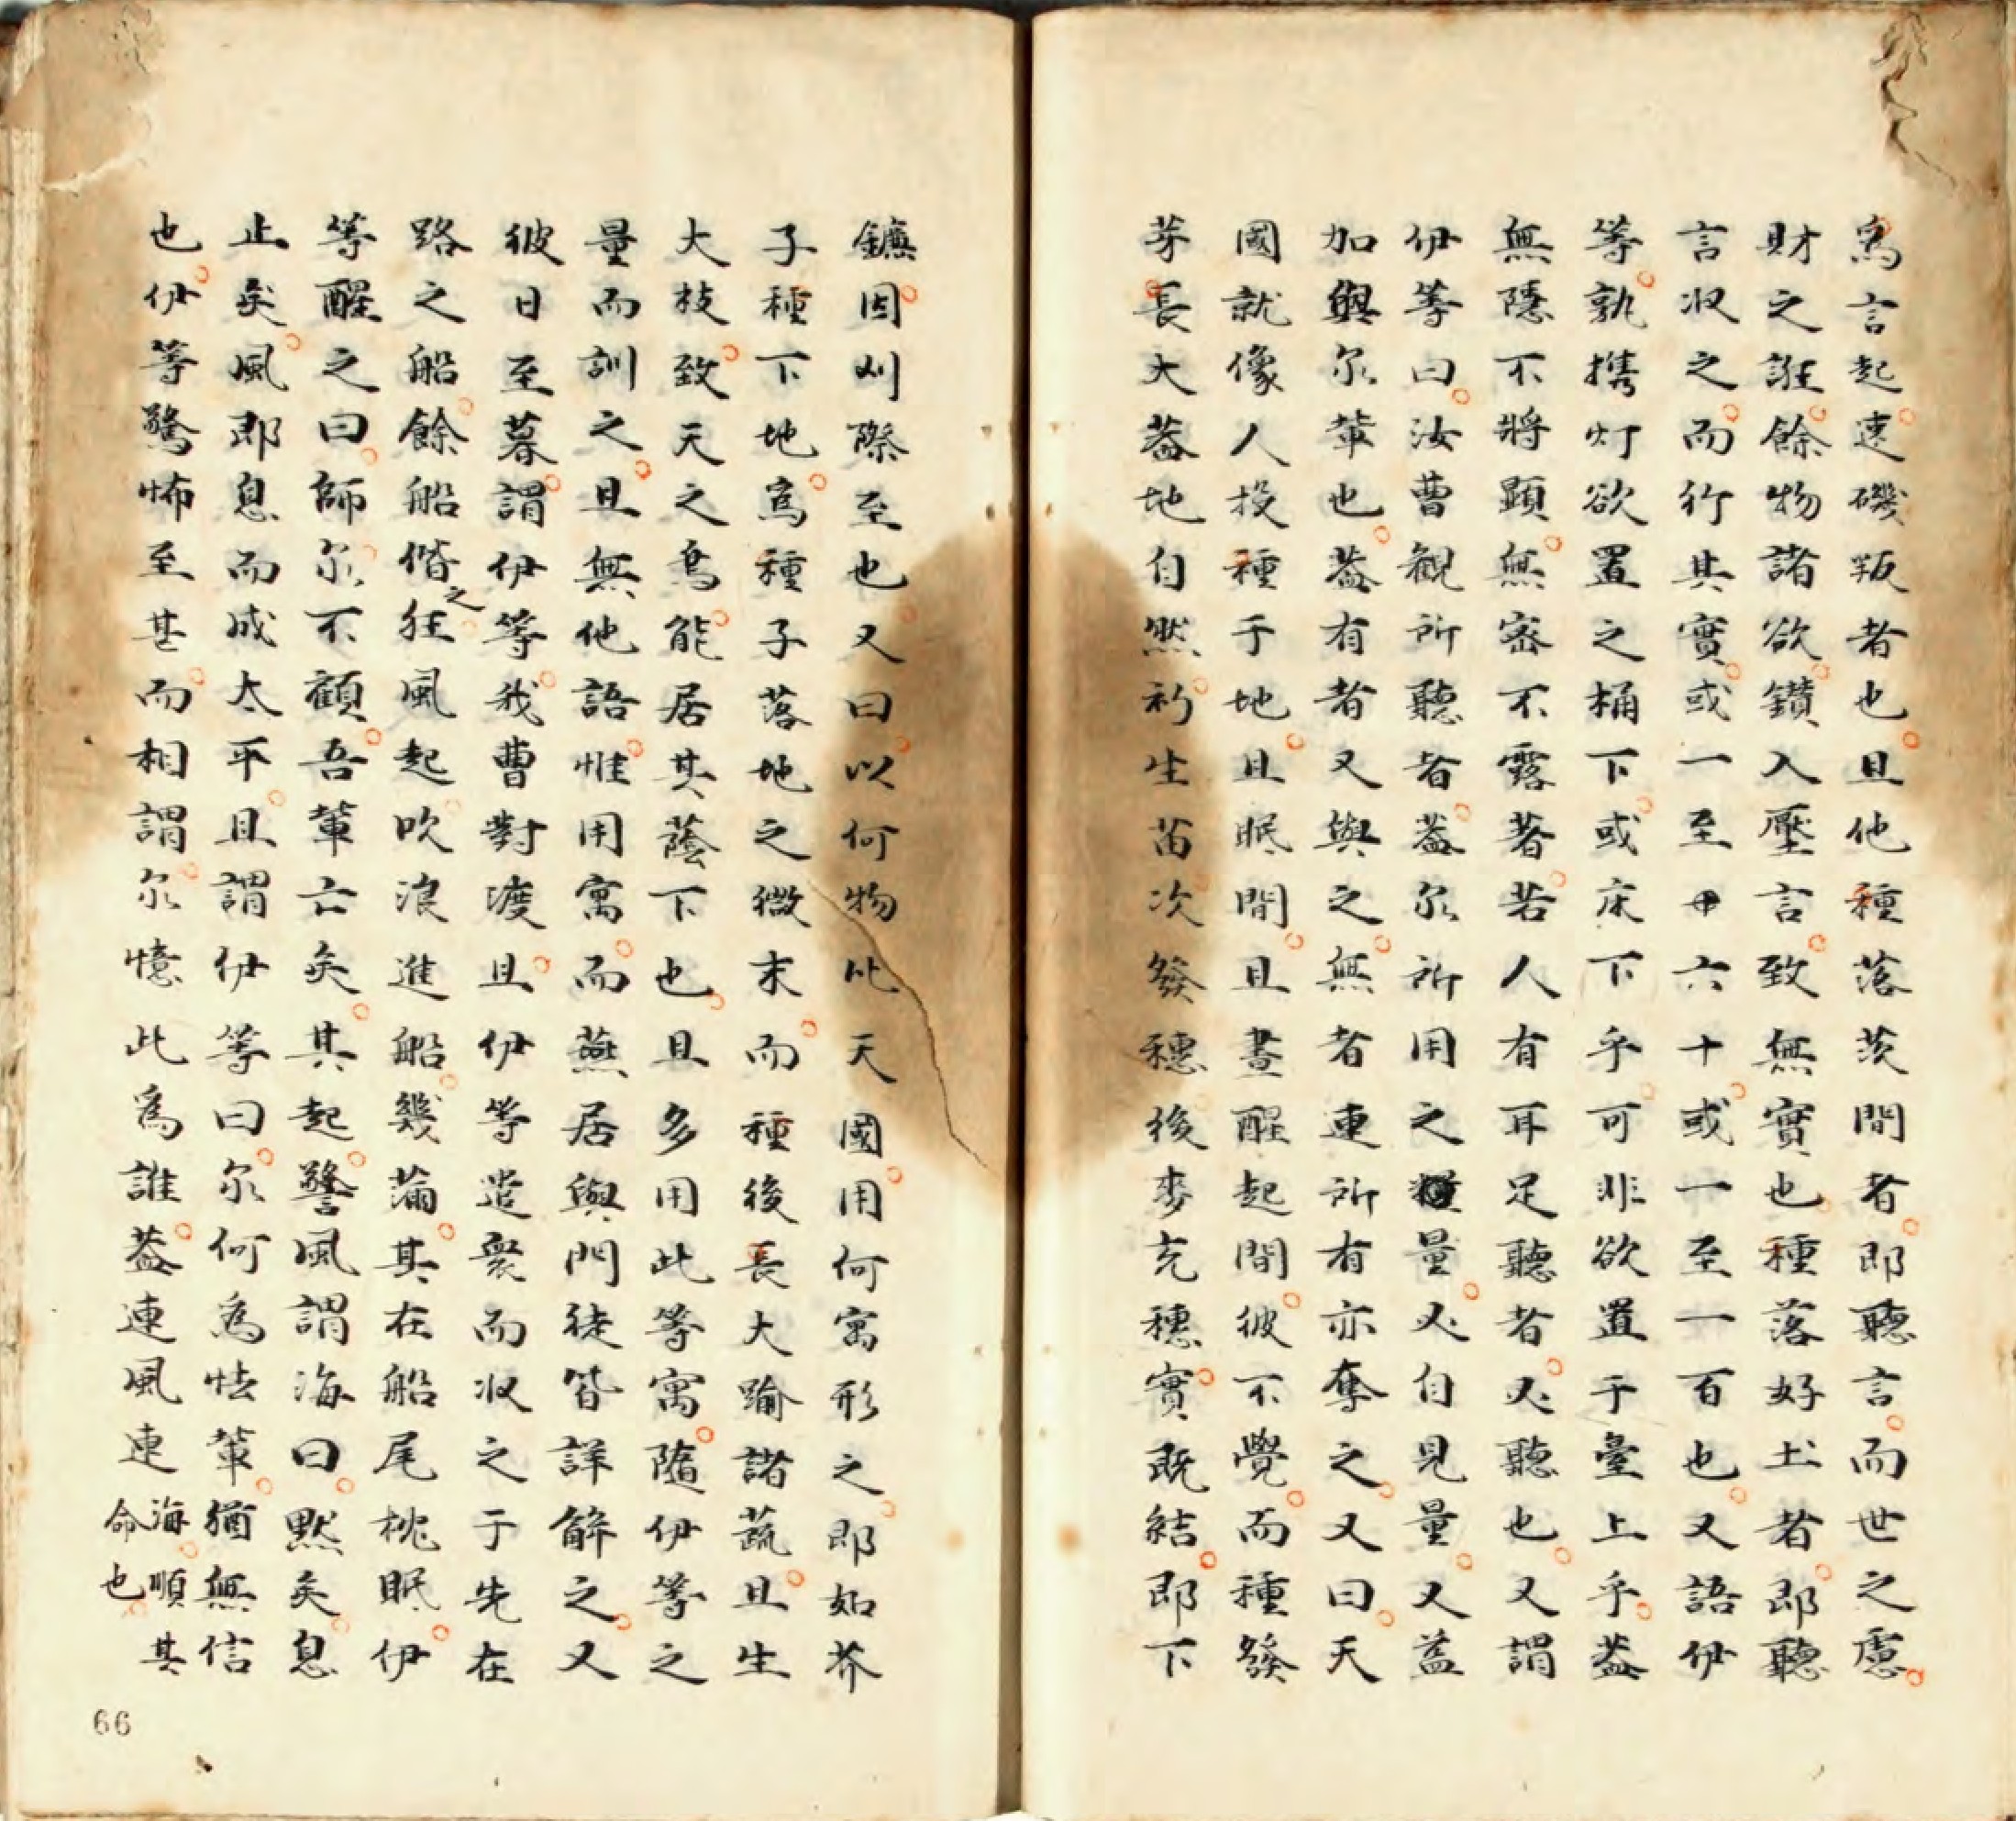 為言起速磯叛者也且他種落茨間者即聽言而世之慮
財之誑餘物諸欲鑚入壓言致無實也種落好土者即聽
言収之而行其實或一至卌六十或一至一百也又語伊
等孰携灯欲置之桶下或床下乎可非欲置于臺上乎葢
無隱不將顕無宻不露著若人有耳足聽者必聽也又謂
伊等曰汝曹観所聽者葢尔所用之量必自見量又益
加與尔軰也葢有者又與之無者連所有亦奪之又曰天
國就像人投種于地且眠間且晝醒起間彼不覺而種發
芽長大葢地自然初生苗次發穗後麥充穗實既結即下
鑣因刈際至也又曰以何物比天國用何寓形之即如芥
子種下地為種子落地之微末而種後長大踰諸蔬且生
大枝致天之鳥能居其蔭下也且多用此等寓隨伊等之
量而訓之且無他語惟用寓而燕居與門徒皆詳解之又
彼日至暮謂伊等我曹對渡且伊等遣衆而収之于先在
路之船餘船偕之狂風起吹浪進船幾滿其在船尾枕眠伊
等醒之曰師尔不顧吾軰亡矣其起警風謂海曰默矣息
止矣風即息而成太平且謂伊等曰尔何為怯軰猶無信
也伊等驚怖至甚而相謂尔憶此為誰葢連風連海順其命也
66